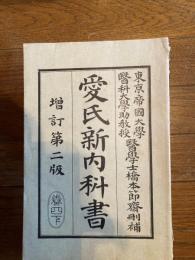 東京帝國大學
醫科大學助教授 醫學士橋本節齋刪補
愛氏新内科書
增訂第二版
卷四下